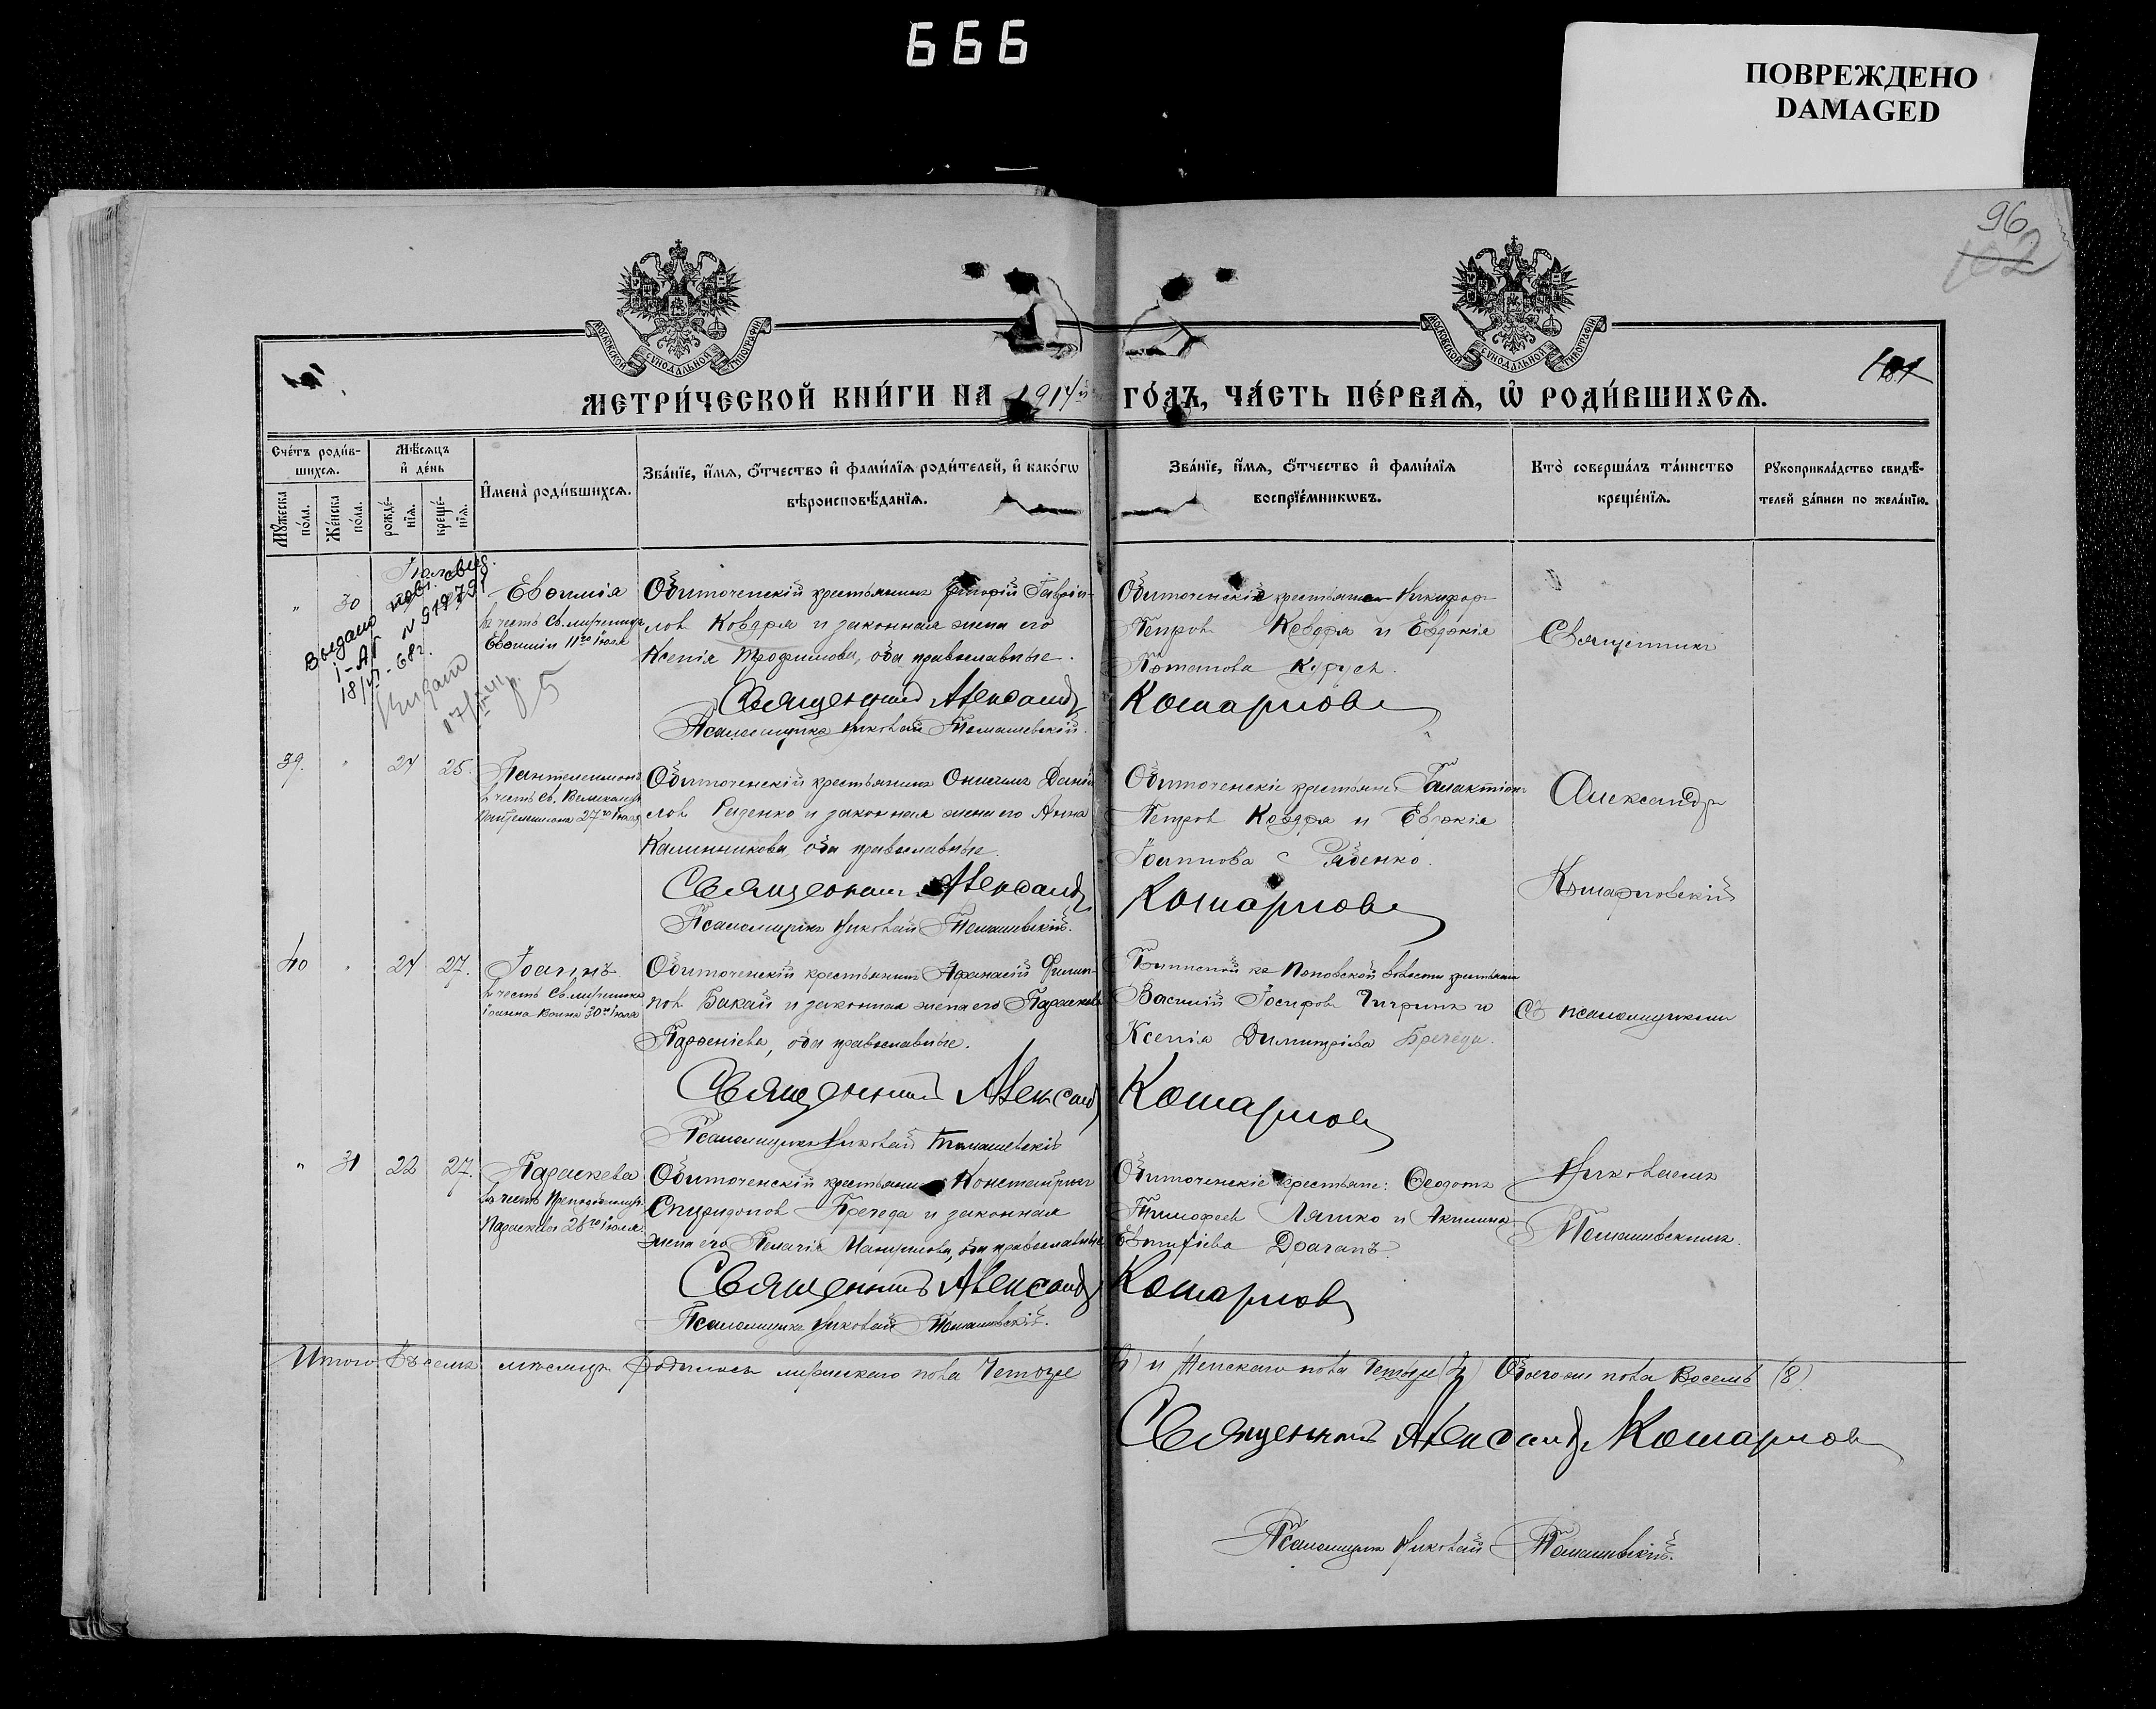 666
ПОВРЕЖДЕНО
DAMAGED
96
102
101
МОСКОВСКОЙ СѴНОДАЛЬНОЙ ТИПОГРАФІИ
МОСКОВСКОЙ СѴНОДАЛЬНОЙ ТИПОГРАФІИ
МЕТРИ́ЧЕСКОЙ КНИ́ГИ НА 1914й ГО́ДЪ, ЧА́СТЬ ПЕ́РВАѦ, Ѡ҆ РОДИ́ВШИХСѦ.
Сче́тъ роди́в-
шихсѧ.
Мꙋ́жеска по́ла.
Же́нска по́ла.
Мѣ́сѧцъ
и҆ де́нь
рожде́-
нїѧ.
креще́-
нїѧ.
И҆мена̀ роди́вшихсѧ.
Зва́нїе, и҆́мѧ, ѻ҆́тчество и҆ фами́лїѧ роди́телей, и҆ како́гѡ
вѣроисповѣ́данїѧ.
Зва́нїе, и҆́мѧ, ѻ҆́тчество и҆ фами́лїѧ
воспрїе́мникѡвъ.
Кто̀ соверша́лъ та́инство
креще́нїѧ.
Рꙋкоприкла́дство свидѣ́-
телей за́писи по жела́нїю.
" 30
Выдано повт. свид.
I-АП № 919791
18/VI-68г.
Евѳимія
въ честь Св. мученицы
Евѳиміи 11го Іюля
Обиточенскій крестьянинъ Григорій Гаврии-
ловъ Ковдря и законная жена его
Ксенія Трофимова, оба православные.
Священникъ Александръ
Псаломщикъ Николай Томашевскій.
Обиточенскіе крестьяне Никифоръ
Петровъ Ковдря и Евдокія
Потапова Курусь.
Кошарнов
Священникъ
39. " 24 25.
Пантелеимонъ
въ честь Св. Великомуч.
Пантелеимона 27го Іюля
Обиточенскій крестьянинъ Онисимъ Дании-
ловъ Руденко и законная жена его Анна
Калинникова, оба православные.
Священникъ Александръ
Псаломщикъ Николай Томашевскій.
Обиточенскіе крестьяне Галактіонъ
Петровъ Ковдря и Евдокія
Іоаннова Рябенко.
Кошарнов
Александръ
Кошарновскій
40 " 24 27.
Іоаннъ
въ честь Св. мученика
Іоанна Воина 30го Іюля
Обиточенскій крестьянинъ Афанасій Филип-
повъ Бакай и законная жена его Параскева
Парѳеніева, оба православные.
Священникъ Александръ
Псаломщикъ Николай Томашевскій
Поповской волости крестьянинъ
Василій Іосифовъ Чигринъ и
Ксенія Димитріева Бречеда.
Кошарнов
Съ псаломщикомъ
" 31 22 27.
Параскева
въ честь Преподобномуч.
Параскевы 26го Іюля.
Обиточенскій крестьянинъ Константинъ
Спиридоновъ Бречеда и законная
жена его Пелагія, оба православные
Священникъ Александръ
Псаломщикъ Николай Томашевскій.
Обиточенскіе крестьяне: Ѳеодотъ
Тимофеевъ Ляшко и Акилина
Драганъ.
Кошарнов
Николаемъ
Томашевскимъ.
Итого въ семъ мѣсяцѣ родилось мужескаго пола Четыре
(4) и Женскаго пола Четыре (4) Обоего же пола Восемь (8)
Священникъ Александръ Кошарнов
Псаломщикъ Николай Томашевскій.